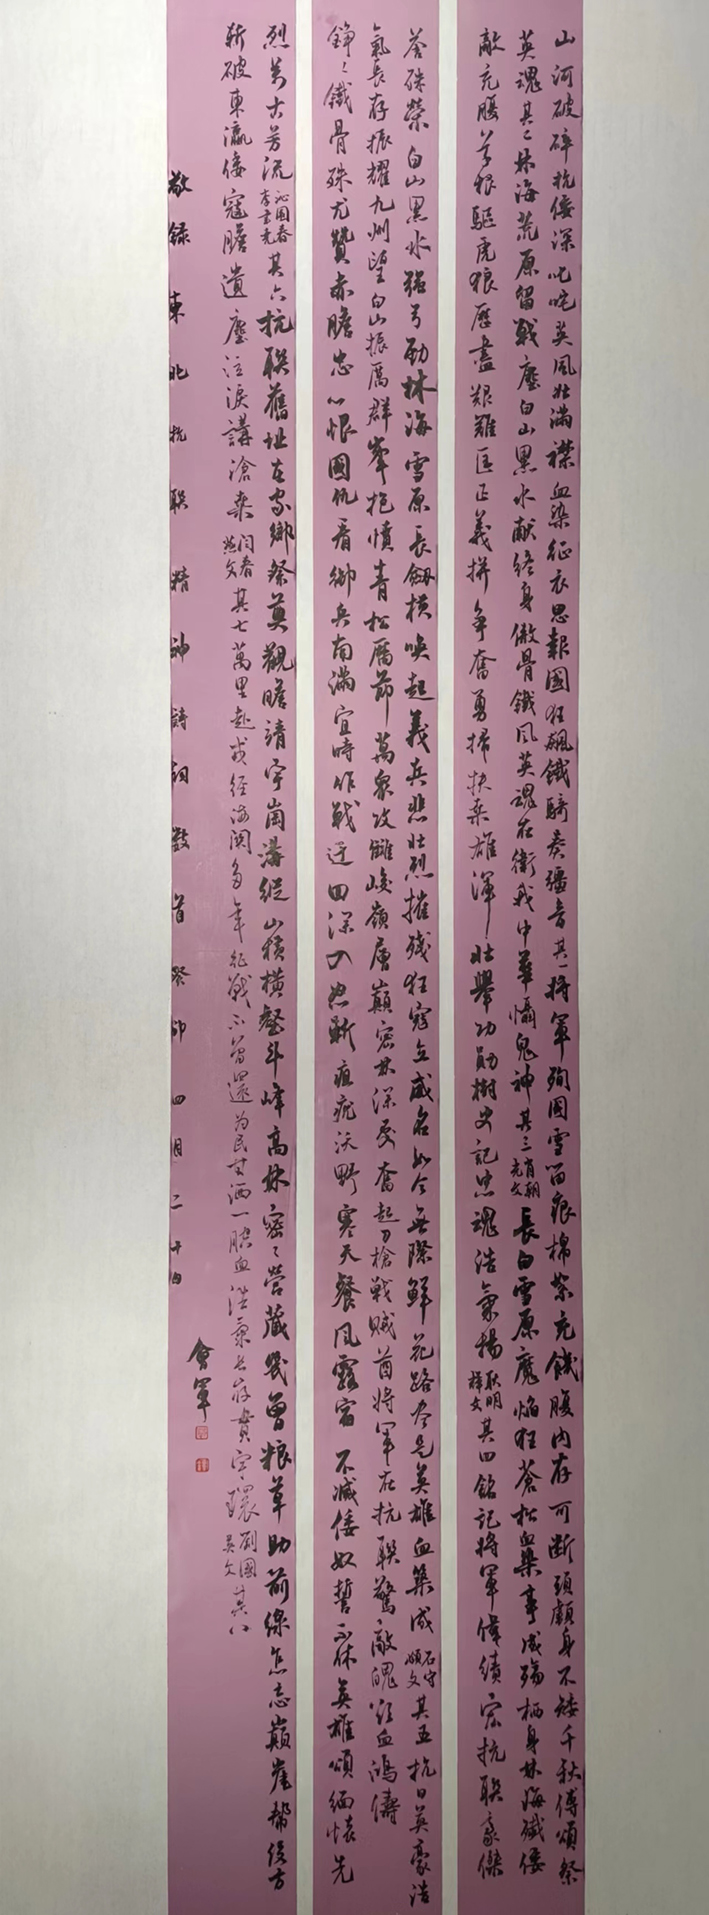 山河破碎抗倭深叱咤英风壮满襟血染征衣思報國狂飆鐵騎奏疆音其一將軍殉国雪留痕棉絮充饑腹内存可断頭顱身不矮千秋傳頌祭
英魂其二林海荒原留戰塵白山黑水献终身傲骨鐵风英魂在衛我中華懾鬼神其三肖朝亮文長白雪原魔焰狂蒼松血染事成殤栖身林海殲倭
敵充腹草根驅虎狼歷盡艱難匡正義拼争奋勇掃扶桑雄渾壯舉功勋樹史記忠魂浩氣揚耿明祥文其四銘記將軍偉績宏抗联豪傑
蒼殊榮白山黑水强弓勁林海雪原長劍横唤起義兵悲壯烈摧残狂寇立威名如今無際鮮花路尽是英雄血築成石守頌文其五抗日英豪浩
氣長存振耀九州望白山振厲群峯抱憤青松厲節萬衆攻讎峻嶺層巔密林深處奮起刀槍戰贼酋將軍在抗联驚敵魄血鴻儔
錚々鐵骨殊尤贊赤膽忠心恨國仇看御兵南满宜時作戰迂回深入忽斬疽疣沃野寒天餐风露宿不滅倭奴誓不休英雄頌緬懷先
烈萬古芳流沁園春李書亮其六抗联舊址在家鄉祭奠觀瞻靖宇崗溝縱山積横壑斗峰高林密々營藏幾曾粮草助前線怎忘巔崖幫後方
斬破東瀛倭寇膽遺塵泣淚講滄桑闫春燕文其七萬里赴戎經海関多年征戰不曾還为民甘洒一腔血浩氣长存貫宇環刘國英文其八
敬録東北抗联精神詩詞数首癸卯四月二十日
會軍